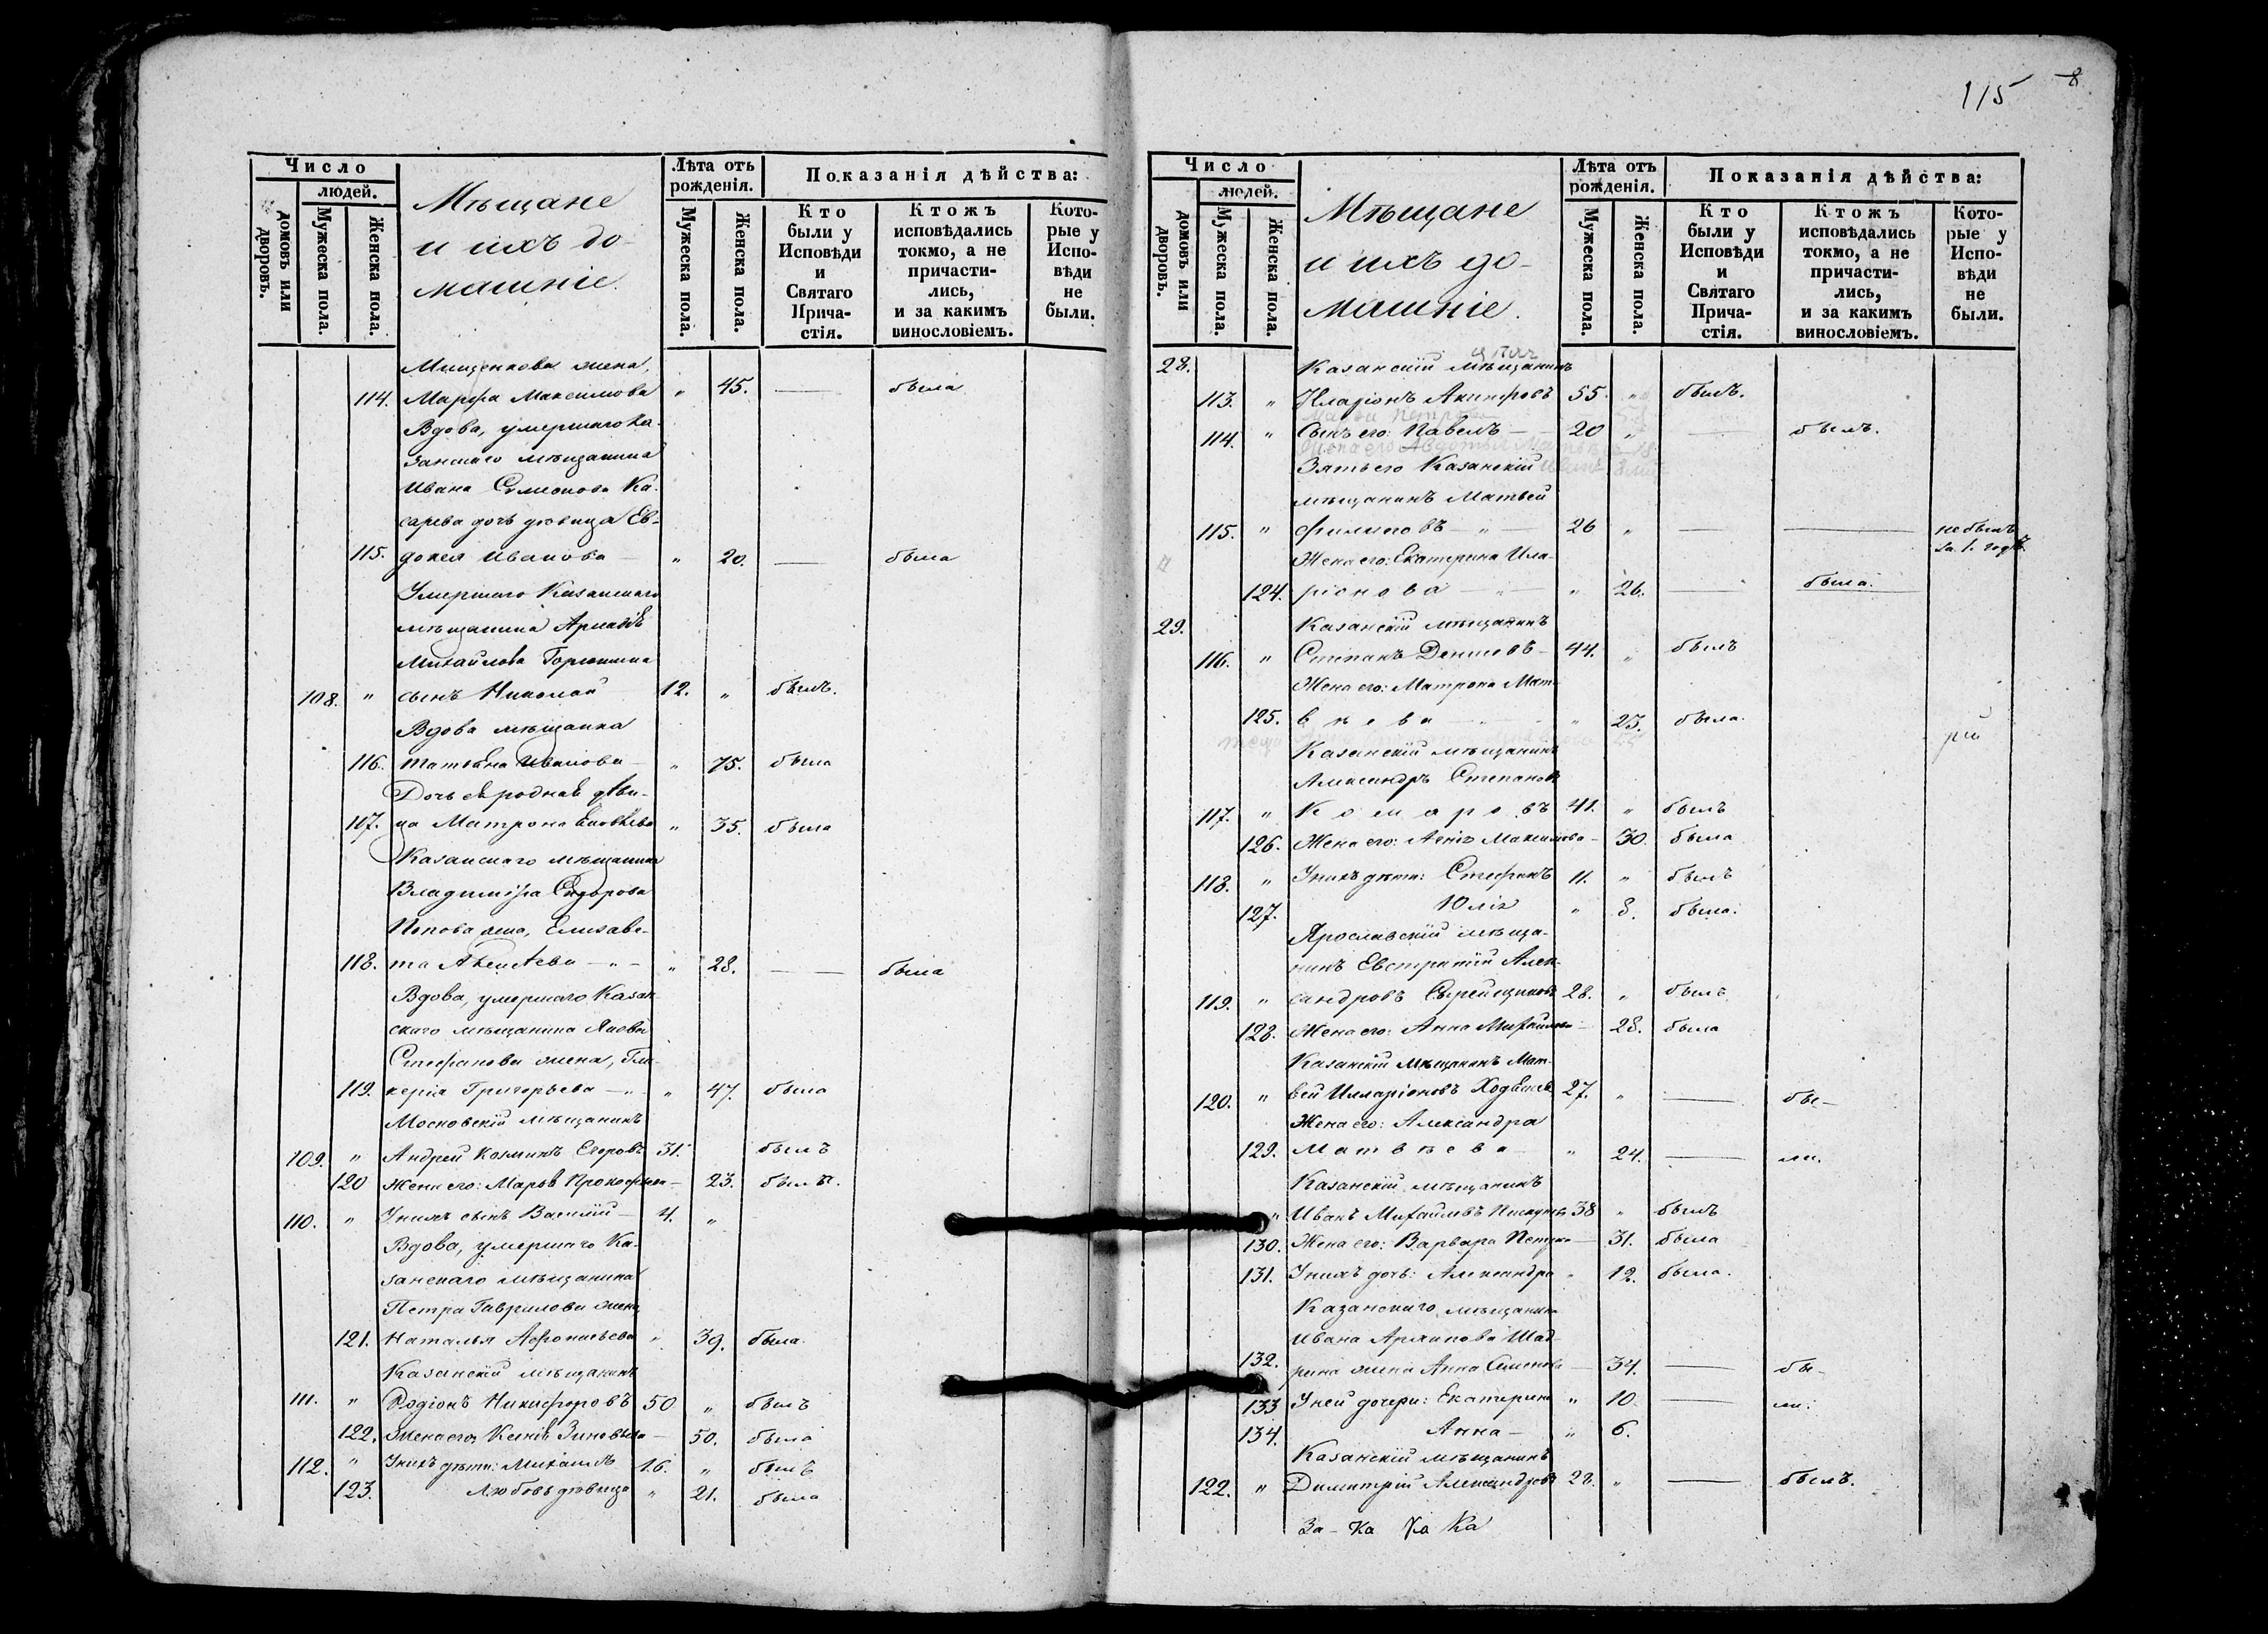 Число
людей.
домовъ или дворовъ.
Мужеска пола.
Женска пола.
Мѣщане
и ихъ до-
машніе.
Лѣта отъ рожденія.
Мужеска пола.
Женска пола.
Показанія дѣйства:
Кто были у Исповѣди и Святаго Прича-стія.
Ктожъ исповѣдались токмо, а не причасти-лись, и за какимъ винословіемъ.
Кото-рые у Испо-вѣди не были.
жена,
114. Марѳа Максимова " 45. — была
Вдова, умершаго Ка-
занскаго мѣщанина
Ивана Симонова Ка-
сарева дочь дѣвица Ев-
115. докея Иванова — " 20. — была
Умершаго Казанскаго
мѣщанина
Михайлова Горюнина
108. " сынъ Николай 12. " былъ.
Вдова мѣщанка
116. Татьяна Иванова — " 75. была
Дочь ея родная дѣви-
117. ца Матрона " 35. была
Казанскаго мѣщанина
Владиміра Сидорова
Попова жена, Елизаве-
118. та — " — " 28. — была
Вдова, умершаго Казан-
скаго мѣщанина Якова
Стефанова жена, Гли-
119. керія Григорьева — " 47. была
Московскій мѣщанинъ
109. " Андрей Козминъ Егоровъ 31. былъ
120 Жена его: Марья Прокофьева — 23. была.
110. " У нихъ сынъ Василій — 4. "
Вдова, умершаго Ка-
занскаго мѣщанина
Петра Гаврилова жена,
121. Наталья Афонасьева " 39. была.
Казанскій мѣщанинъ
111. " Родіонъ Никифоровъ 50 " былъ
122. Жена его, Ксенія Зиновьева — 50. была
112. " У нихъ дѣти: Михаилъ 16. " былъ
123. Любовь дѣвица " 21. была
115
Число
людей.
домовъ или дворовъ.
Мужеска пола.
Женска пола.
Мѣщане
и ихъ до-
машніе.
Лѣта отъ рожденія.
Мужеска пола.
Женска пола.
Показанія дѣйства:
Кто были у Исповѣди и Святаго Прича-стія.
Ктожъ исповѣдались токмо, а не причасти-лись, и за какимъ винословіемъ.
Кото-рые у Испо-вѣди не были.
28. Казанскій мѣщанинъ
113. " Иларіонъ Акинфовъ 55. " былъ.
114. " Сынъ его: Павелъ — 20 " — былъ.
Зять его Казанскій
мѣщанинъ Матвей
115. " Филиповъ — " — 26 " — — не былъ
за 1. годъ.
Жена его: Екатерина Ила-
124. ріонова — " — " 26. — была.
29. Казанскій мѣщанинъ
116. " Степанъ Денисовъ — 44. " былъ
Жена его: Матрона Мат-
125. вѣева — " — " 23. была.
Казанскій мѣщанинъ
Александръ Степановъ
117. " Комаровъ 41. " былъ
126. Жена его: Максимова — 30. была
118. " У нихъ дѣти: Стефанъ 11. " былъ
127. Юлія " 8. была.
Ярославскій мѣща-
нинъ Евстратій Алек-
119. " сандровъ Сырейщиковъ 28. " былъ
128. Жена его: Анна Михайлова — 28. была
Казанскій мѣщанинъ Мат-
120. " вей Илларіоновъ 27. " — бы-
Жена его: Александра
129. Матвѣева — " 24. — ли.
Казанскій мѣщанинъ
" Иванъ Михайловъ 38 " былъ
130. Жена его: Варвара Петрова — 31. была
131. У нихъ дочь: Александра " 12. была.
Казанскаго мѣщанина
Ивана Архипова Шад-
132. рина жена Анна Семенова — 34. — бы-
133 У ней дочери: Екатерина " 10. — ли.
134. Анна — " 6.
Казанскій мѣщанинъ
122. " Димитрій Александровъ 28. " — былъ.
За-ка Ка Ка